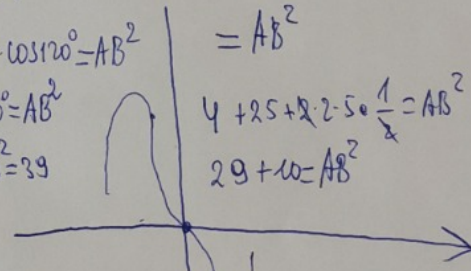 cos120°=AB²
°=AB²
²=39
=AB²
4+25+2·2·5·1/2=AB²
29+10=AB²